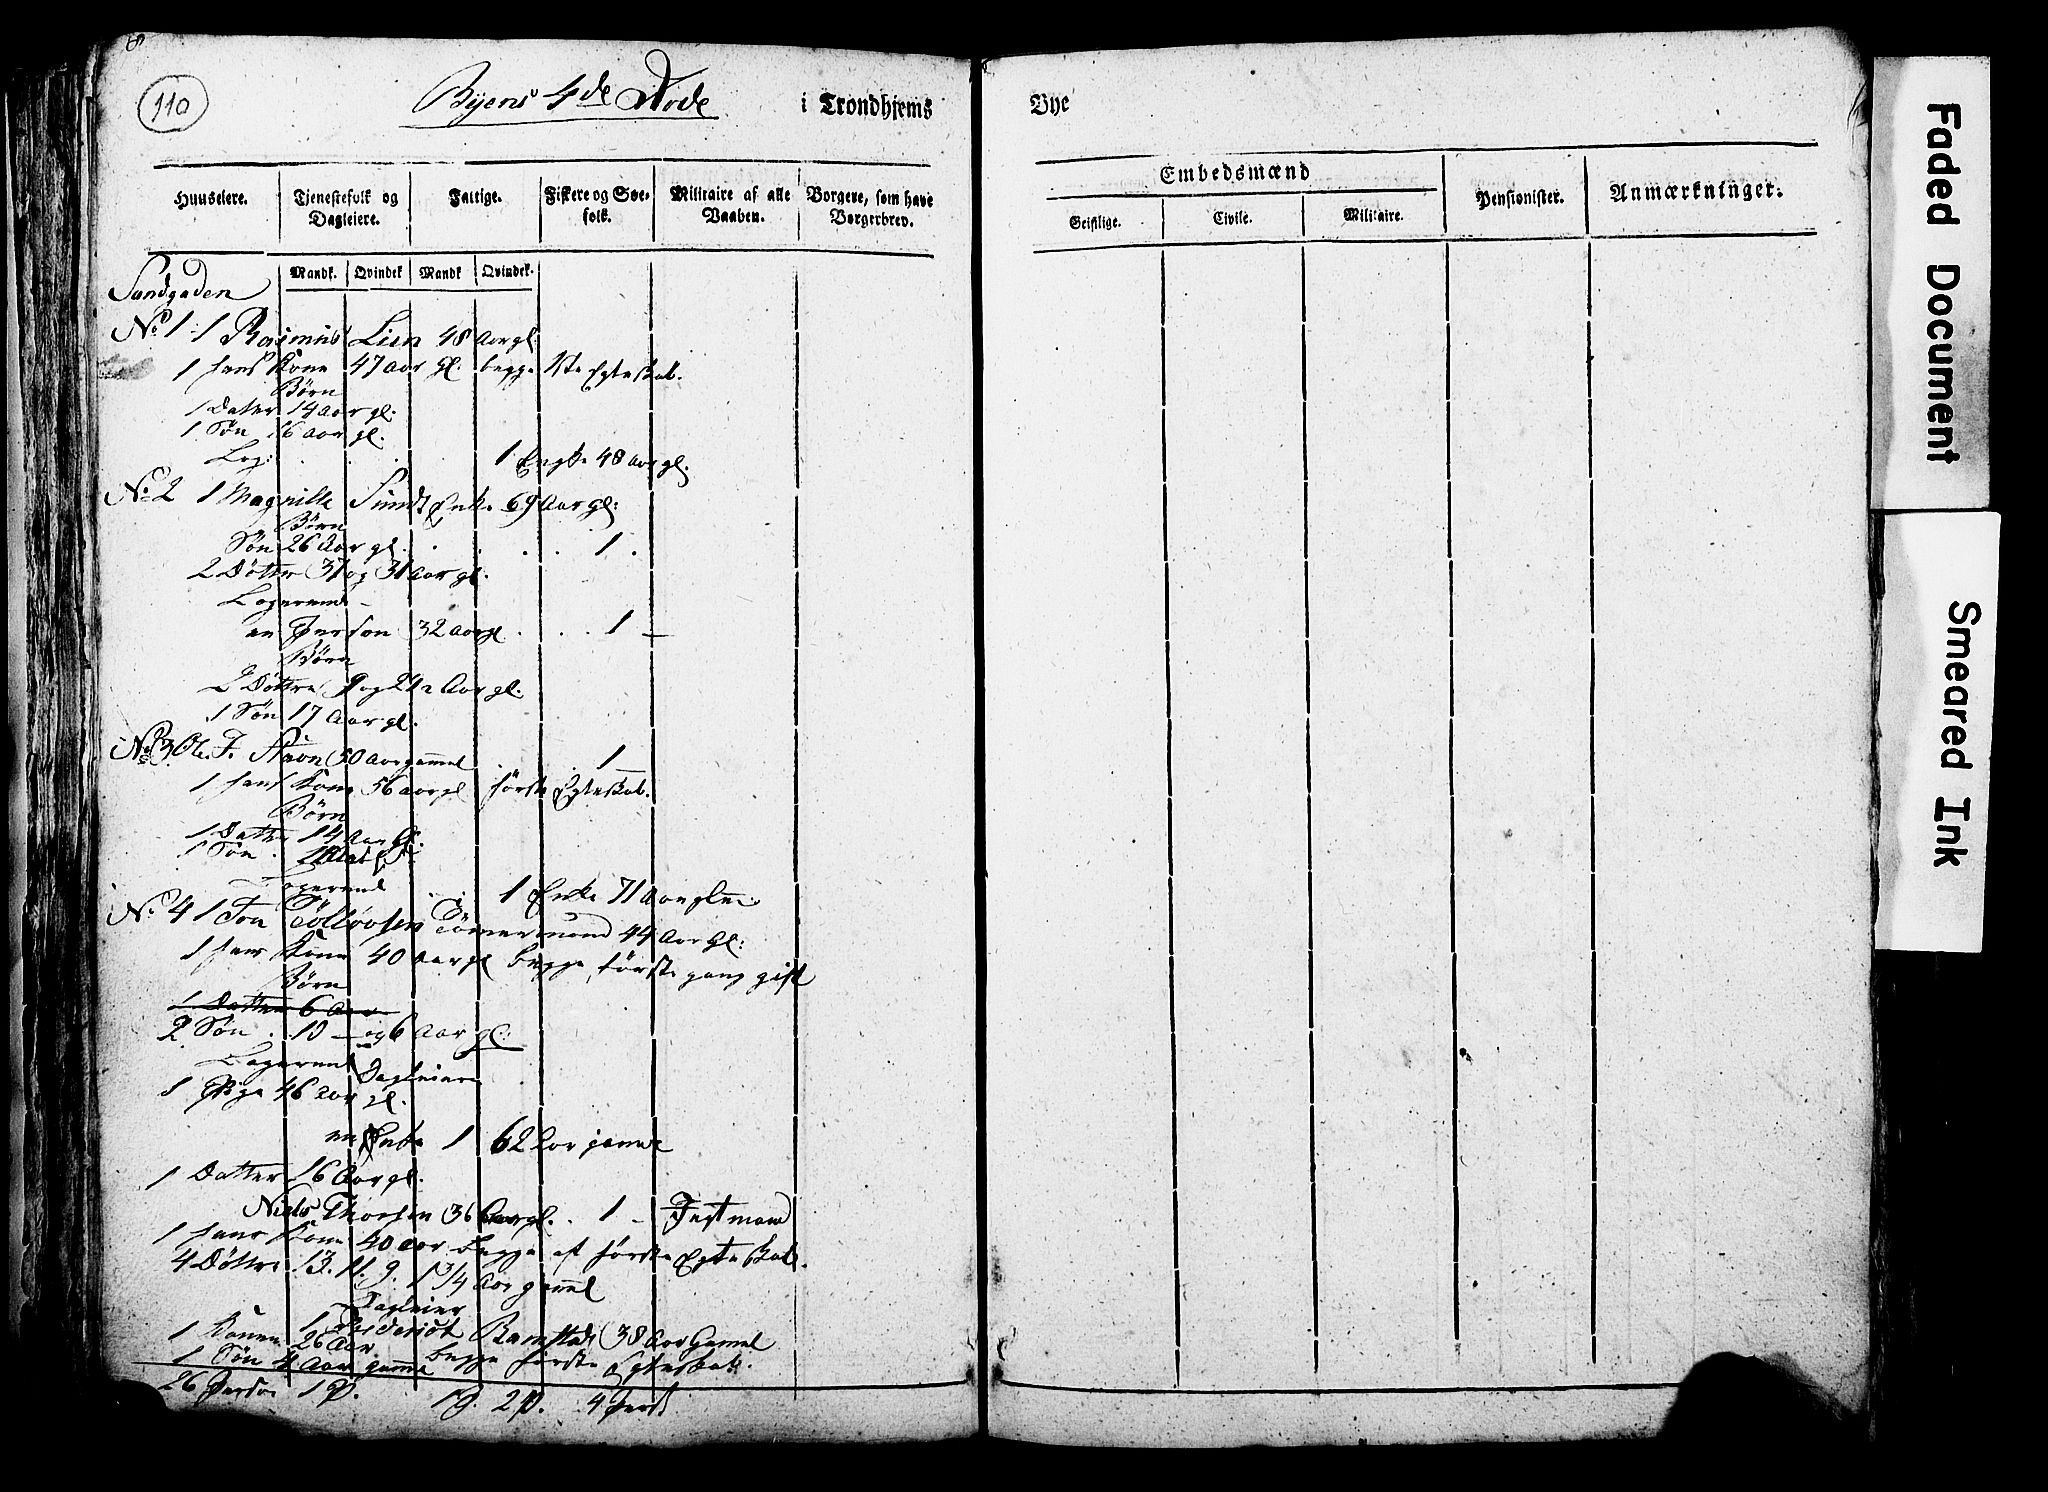 110
Byens 4de Rode i Trondhjems Bye
Huuseiere. Tjenestefolk og Dagleiere. Fattige. Fiskere og Søefolk. Militaire af alle Vaaben. Borgere, som have Borgerbrev. Embedsmænd Pensionister. Anmærkninger.
Geistlige. Civile. Militaire.
Mandk. Qvindek Mandk Qvindek.
Sandgaden
No 1 1 Rasmus Lien 48 Aar gl.
1 hans Kone 47 Aar gl. begge 1ste Egteskab.
Børn
1 Datter 14 Aar gl.
1 Søn 16 Aar gl.
Log: 1 Enke 48 Aar gl.
No 2 1 Magnille Sundt Enke 69 Aar gl:
Børn
Søn 26 Aar gl. 1.
2 Døttre 37 og 31 Aar gl.
Logerende
en Person 32 Aar gl. 1 —
Børn
2 Døttre 9 og Aar gl.
1 Søn 17 Aar gl.
No 3 Ole J. 50 Aar gammel 1
1 hans Kone 56 Aar gl første Egteskab.
Børn
1 Datter 14 Aar Gl.
1 Søn
Logerend 1 Enke 71 Aar
No 4 1 Jon Tømermand 44 Aar Gl:
1 hans Kone 40 Aar gl begge første gang gift
Børn
1 Datter 6 Aar
2 Søn 10 — og 6 Aar gl:
Logerend Dagleier
1 Pige 46 Aar gl.
en Enke 1 62 Aar
1 Datter 16 Aar gl.
Niels Thorsen 36 Aar gl. 1 —
1 hans Kone 40 Aar begge af første Egteskab.
4 Døttre 13. 11. 9. 1 3/4 Aar gamel
Dagleier
1 Friderich Ramstad 38 Aar Gamel
1 Konen 26 Aar. begge første Egteskab.
1 Søn 4 Aar gamel
26 Person 1 P. 1 P. 2 P. 4 Pers
Faded Document
Smeared Ink